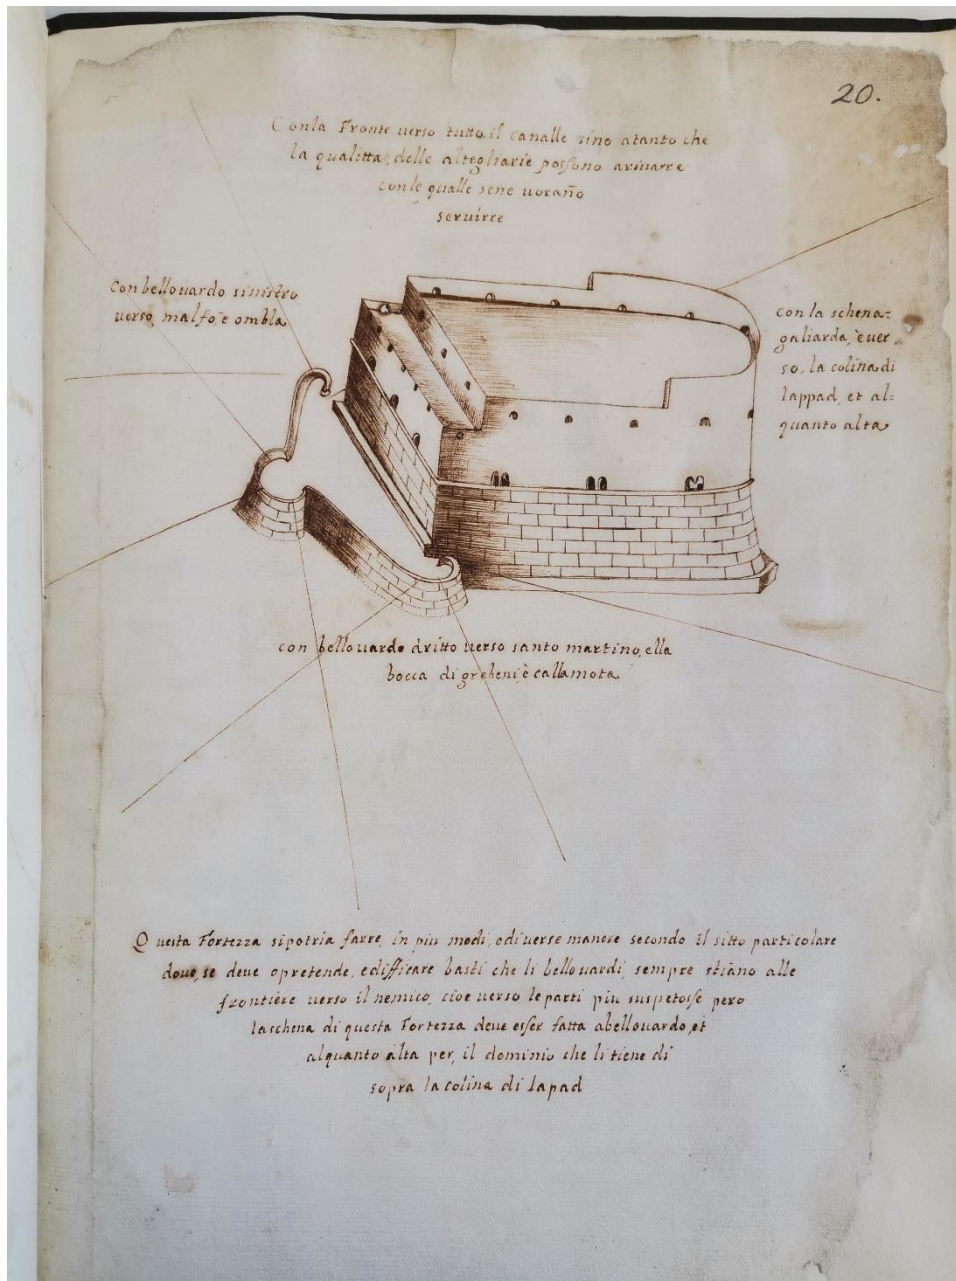 20.
Con la Fronte uerso tutto il canalle sino atanto che
la qualitta, delle altegliarie possono ariuarre
con le qualle sene uorano
seruirre
con bellouardo sinistro
uerso, malfo è ombla
con la schena-
galiarda, è uer
so, la colina di
lappad, et al=
quanto alta
con bellouardo dritto uerso santo martino, ella
bocca di grebeni, è callamota
Questa Fortezza si potria farre, in piu modi, ediuerse manere secondo il sitto particolare
doue, se deue opretende, edifficare basti che li bellouardi, sempre stiano alle
frontiere uerso il nemico, cioe uerso le parti piu suspetosse pero
la schena di questa Fortezza deue esser fatta abellouardo, et
alquanto alta per, il dominio che li tiene di
sopra la colina di lapad